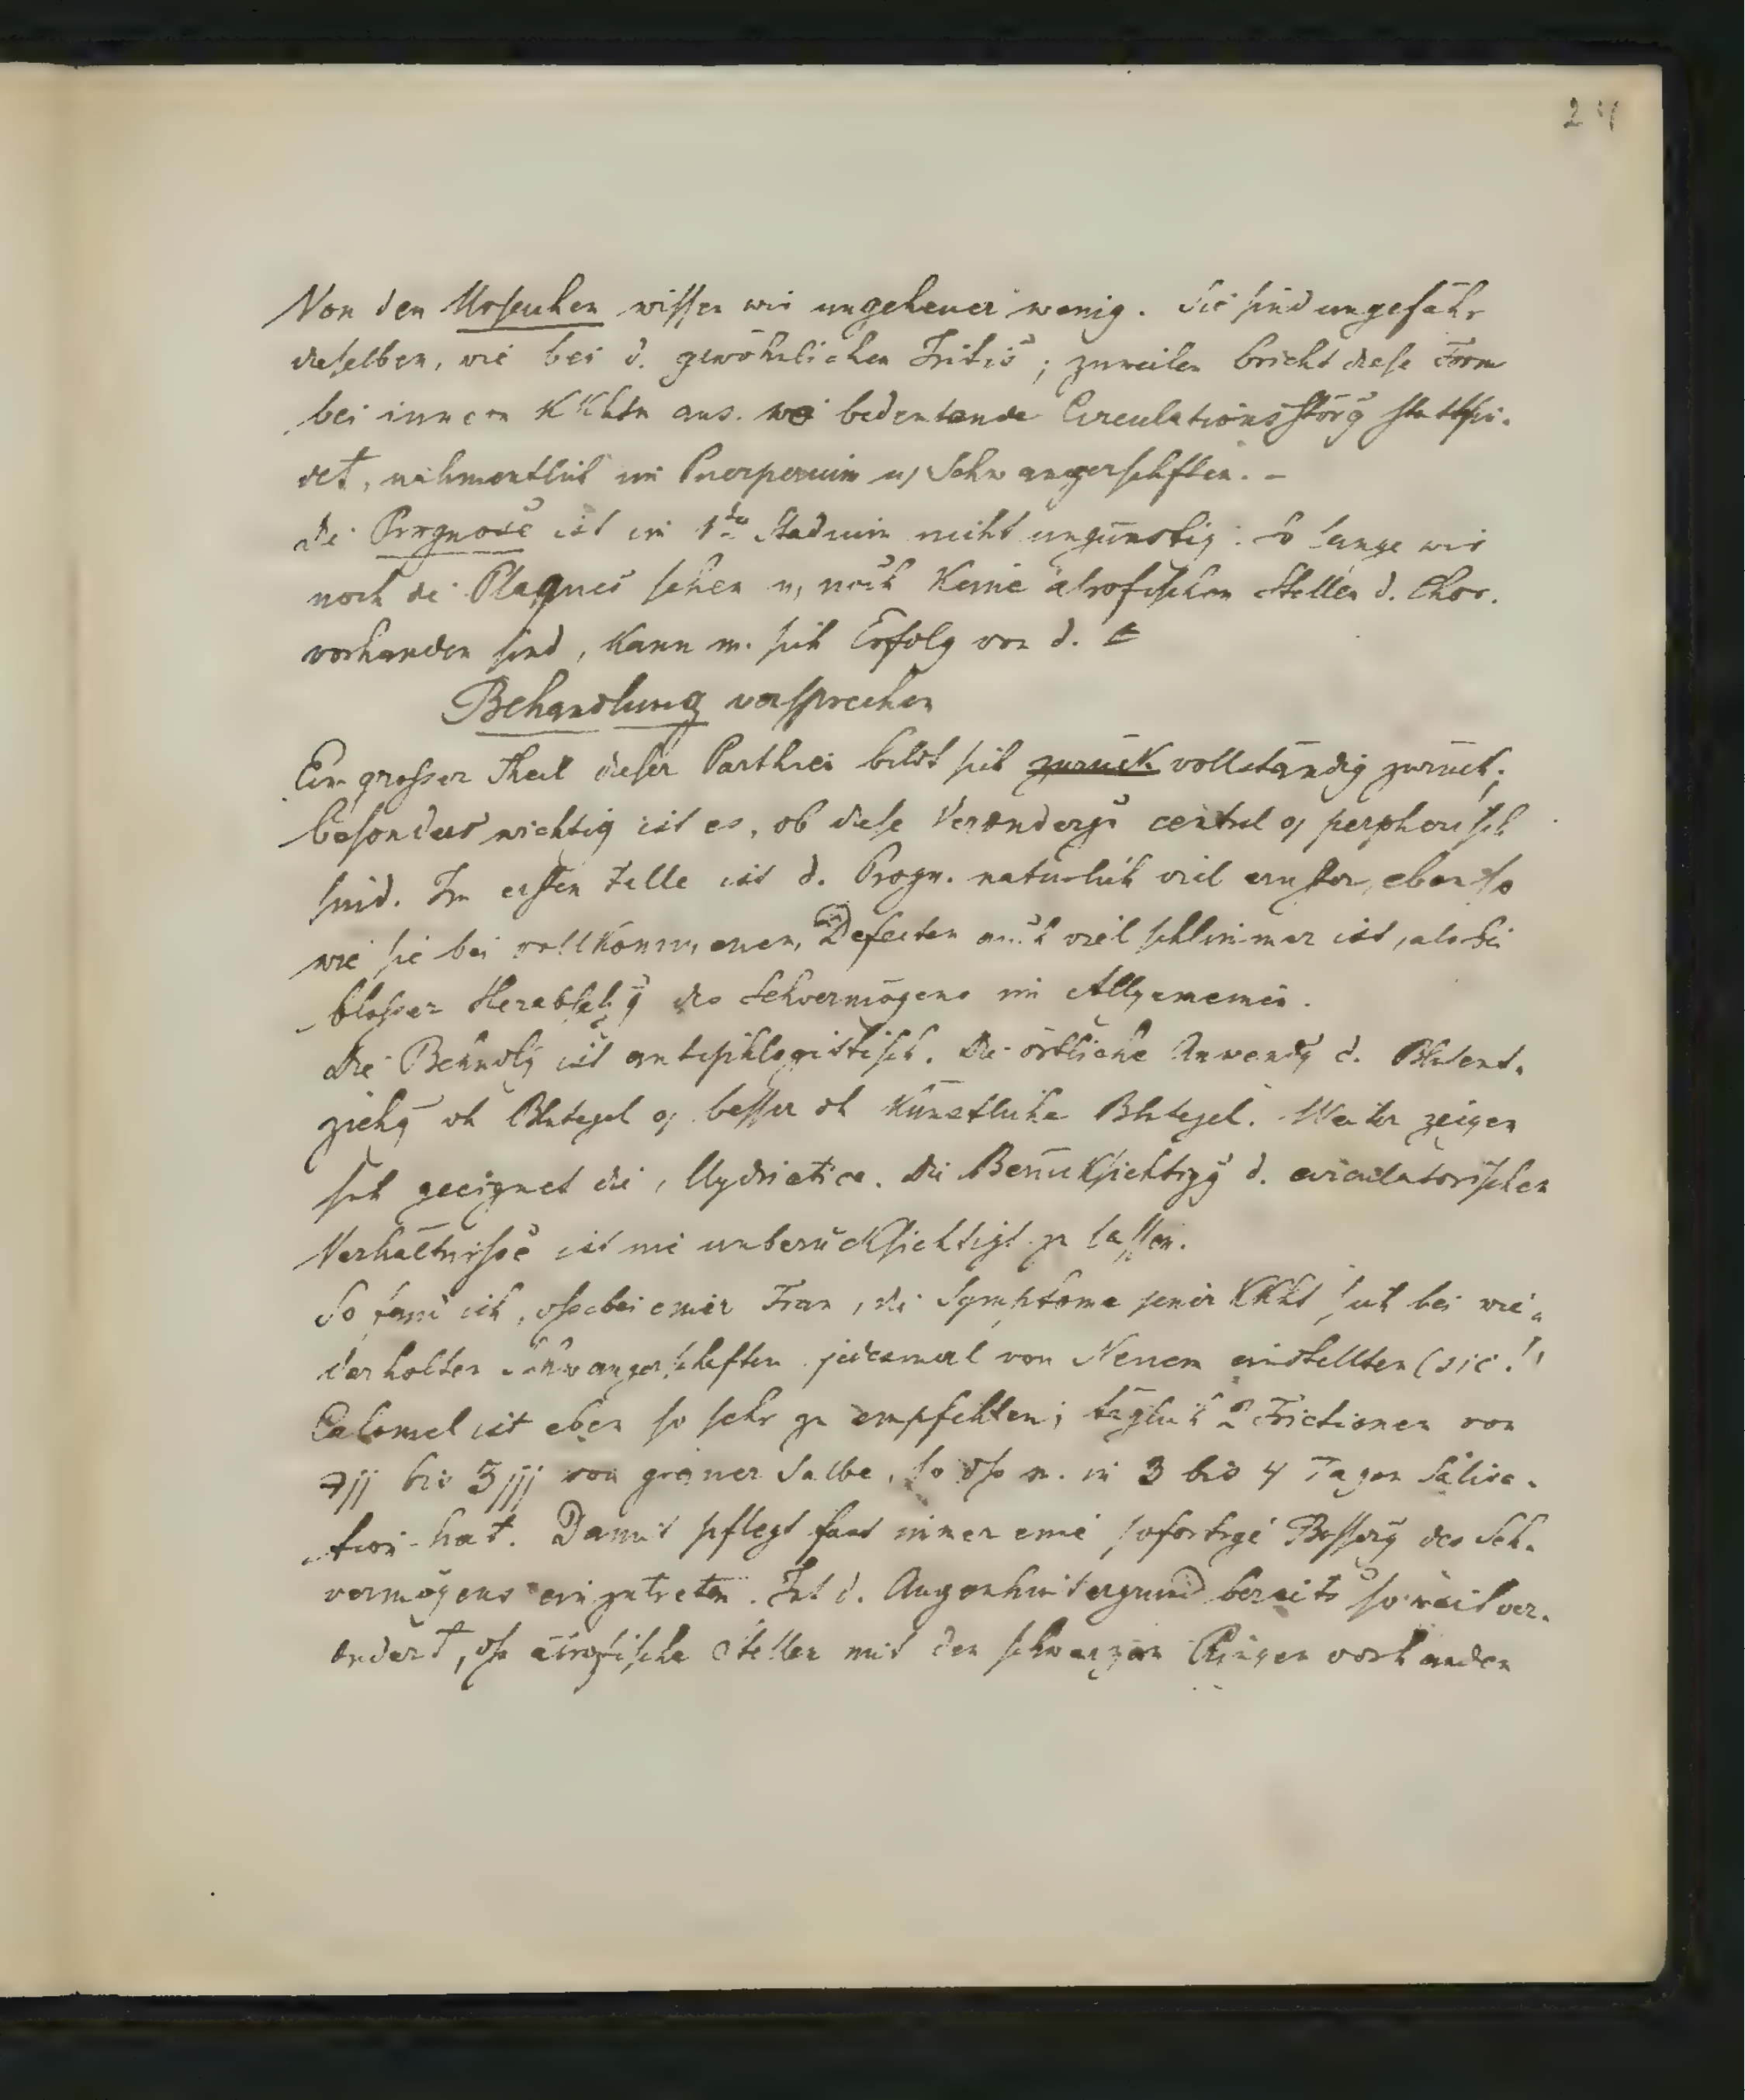 24
Von den Ursachen wissen wir ungeheuer wenig. Sie sind ungefähr
dieselben, wie bei d. gewöhnlichen Iritis; zuweilen bricht diese Form
bei innern KKhtn aus. wo bedeutende Circulationsstörg stattfin-
det, nahmentlich im Puerperium u, Schwangerschften. –
die Prognose ist im 1ten Stadium nicht ungünstig: so lange wir
noch die Plaques sehen u, noch Keine atrofischen Stellen d. Chor.
vorhanden sind, Kann m. sich Erfolg von d.
Behandlung versprechen
Ein grosser Theil dieser Parthiei bildt sich zurück vollständig zurück;
besonders wichtig ist es, ob diese Verändergn central o, peripherisch
sind. Im ersten Falle ist d. Progn. natürlich viel ernster, eben so
wie sie bei vollkommenen, Defecten auch viel schlimmer ist, als bei
blosser Herabsetzg des Sehvermögens im Allgemeinen.
Die Behndlg ist antiphlogistisch. Die örtliche Anwendg d. Blutent-
ziehg dh Blutegel o, besser dh Künstliche Blutegel. Weiter zeigen
sich geeignet die, Mydriatica. Die Berücksichtigg d. circulatorischen
Verhältnisse ist nie unberücksichtigt zu lassen.
So fand ich, dss bei einer Frau, die Symptome jener KKht sich bei wie-
derholten Schwangerschaften jedesmal von Neuem einstellten (sic!)
Calomel ist eben so sehr zu empfehlen; täglich 2 Frictionen von
jj bis 3jjj von grauer Salbe, so dss m. in 3 bis 4 Tagen Saliva-
tion hat. Damit pflegt fast immer eine sofortige Besserg des Seh-
vermögens einzutreten. Ist d. Augenhintergrund bereits so weit ver-
ändert, dss atrofische Stellen mit den schwarzen Ringen vorhanden